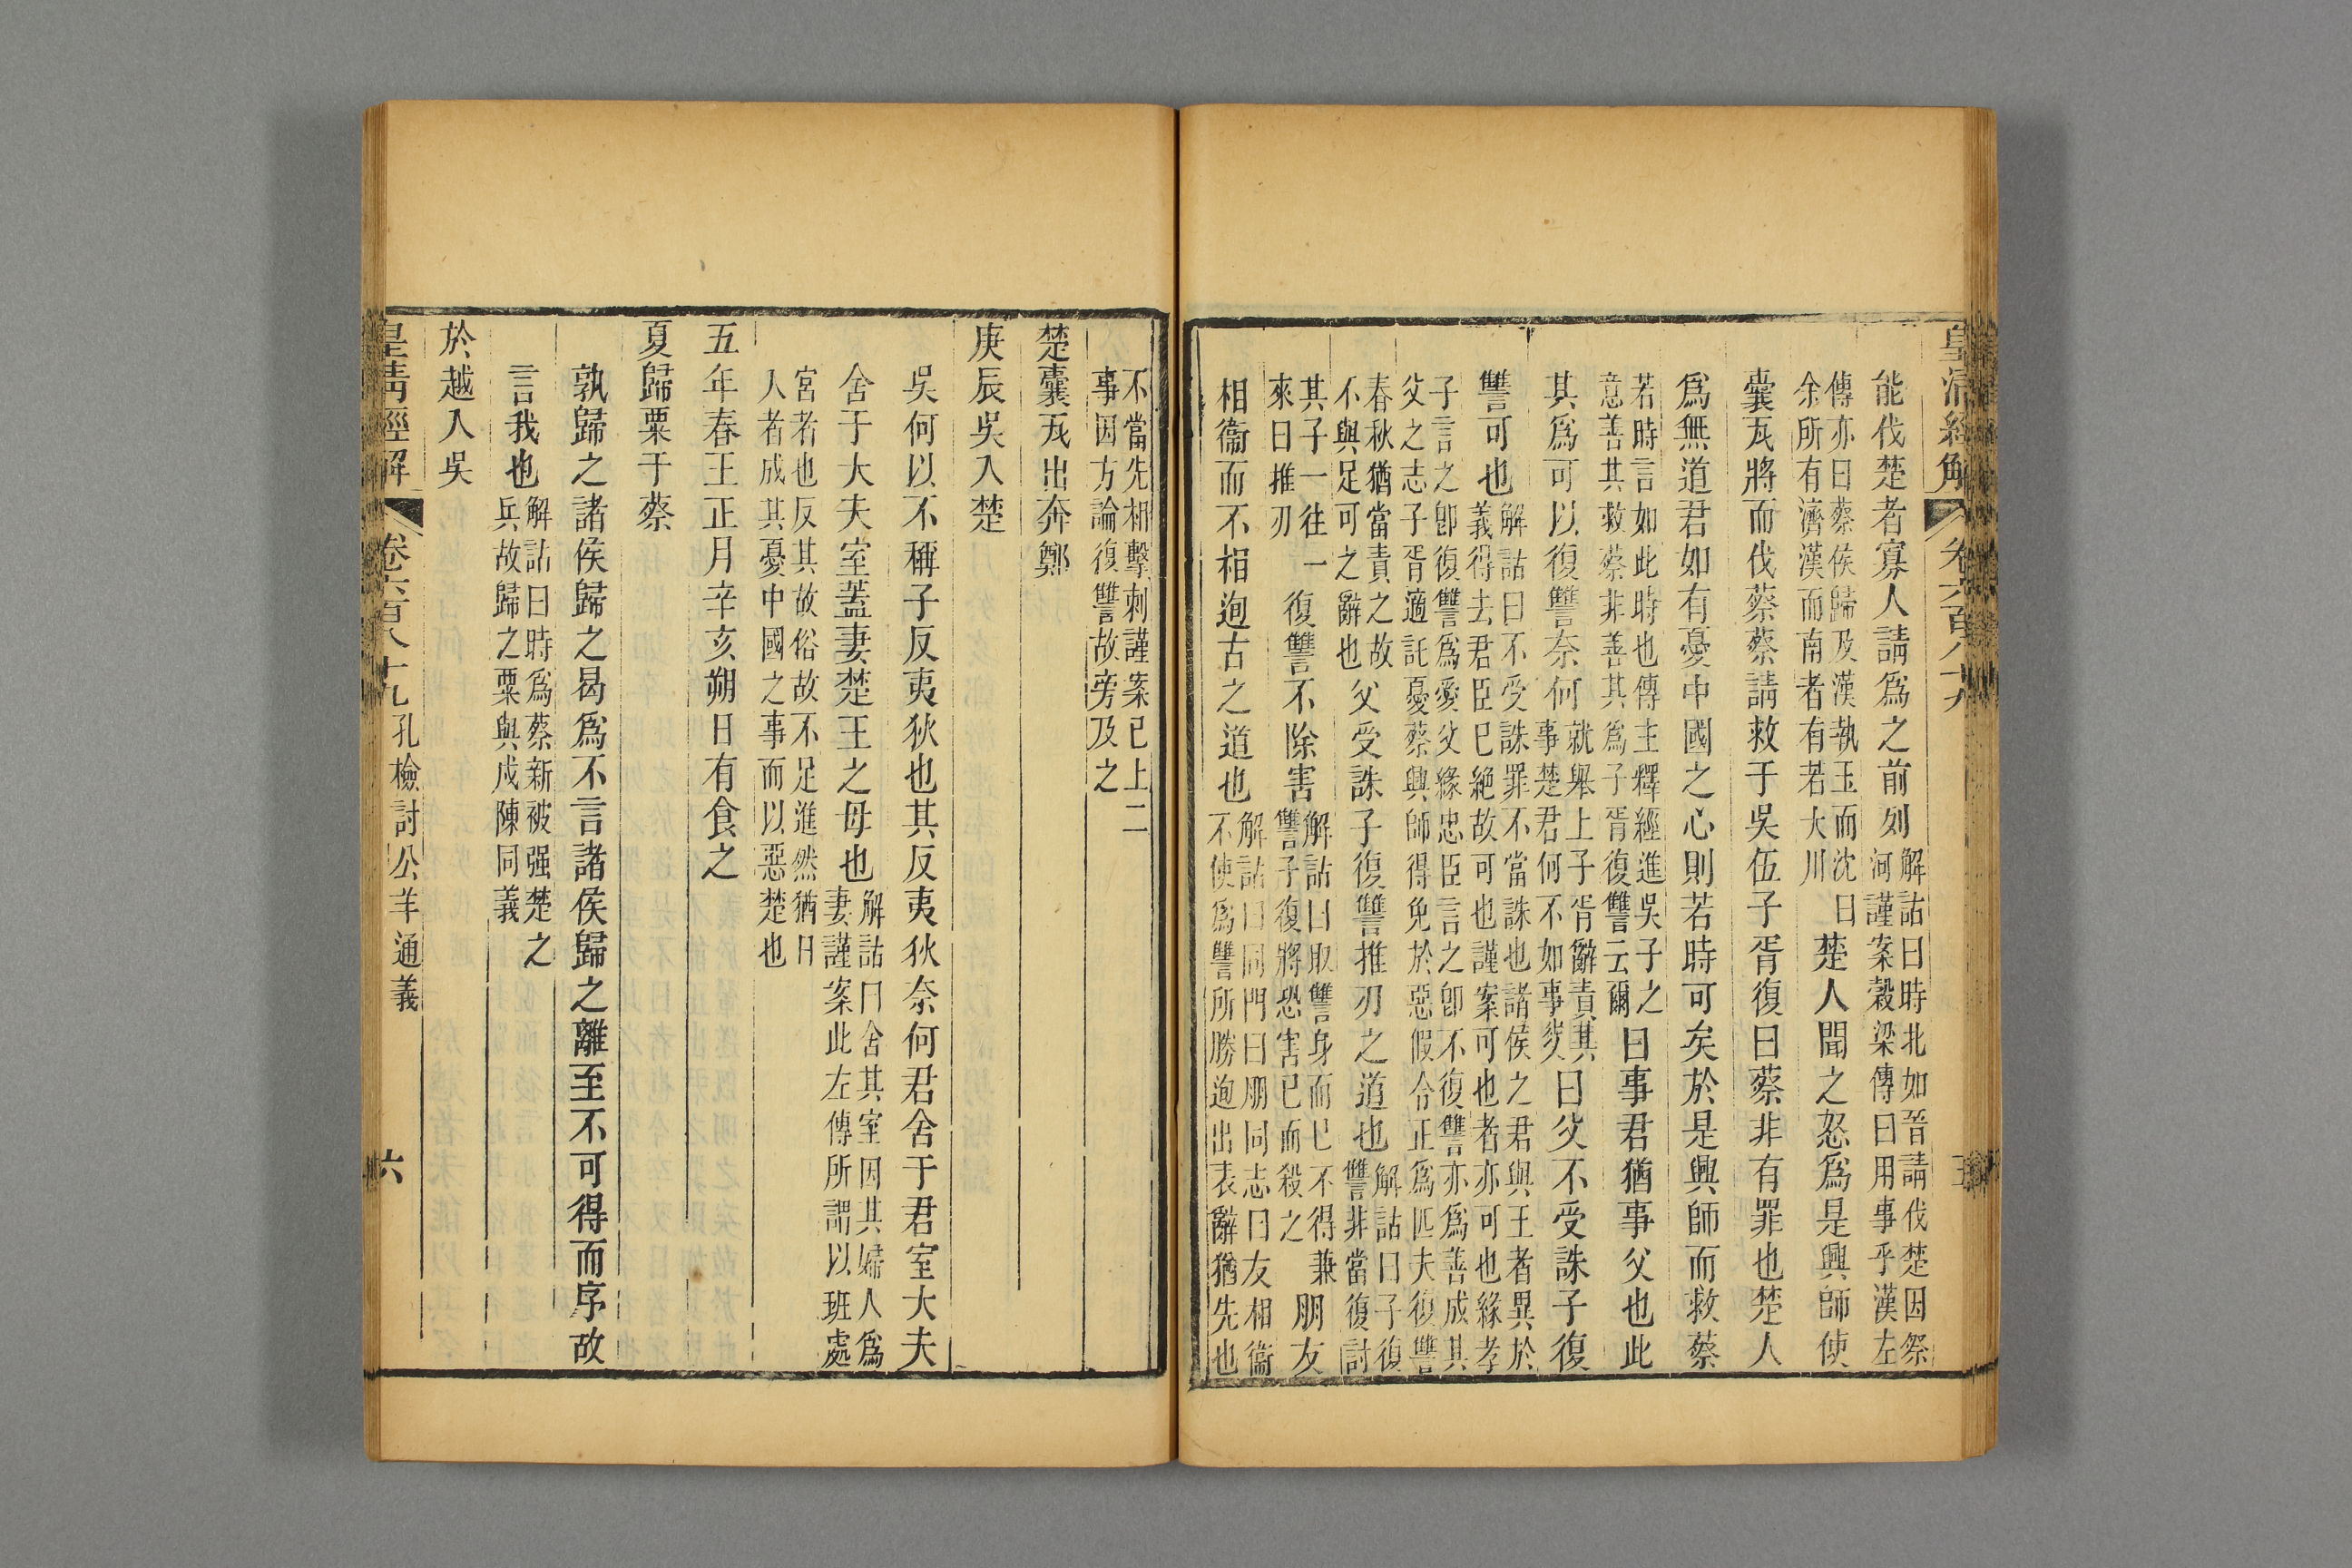 皇清經解 卷六百八十九 五
能伐楚者寡人請爲之前列解詁曰時北如晉請伐楚因祭河謹案穀梁傳曰用事乎漢左
傳亦曰蔡侯歸及漢執玉而沈曰余所有濟漢而南者有若大川楚人聞之怒爲是興師使
囊瓦將而伐蔡蔡請救于吳伍子胥復曰蔡非有罪也楚人
爲無道君如有憂中國之心則若時可矣於是興師而救蔡
若時言如此時也傳主釋經進吳子之意善其救蔡非善其爲子胥復讐云爾曰事君猶事父也此
其爲可以復讐奈何就舉上子胥辭責其事楚君何不如事父曰父不受誅子復
讐可也解詁曰不受誅罪不當誅也諸侯之君與王者異於義得去君臣已絕故可也謹案可也者亦可也緣孝
子言之卽復讐爲愛父緣忠臣言之卽不復讐亦爲善成其父之志子胥適託憂蔡興師得免於惡假令正爲匹夫復讐
春秋猶當責之故不與足可之辭也父受誅子復讐推刃之道也解詁曰子復讐非當復討
其子一往一來曰推刃復讐不除害解詁曰取讐身而已不得兼讐子復將恐害已而殺之朋友
相衞而不相迿古之道也解詁曰同門曰朋同志曰友相衞不使爲讐所勝迿出表辭猶先也
不當先相擊刺謹案已上二事因方論復讐故旁及之
楚囊瓦出奔鄭
庚辰吳入楚
吳何以不稱子反夷狄也其反夷狄奈何君舍于君室大夫
舍于大夫室蓋妻楚王之母也解詁曰舍其室因其婦人爲妻謹案此左傳所謂以班處
宮者也反其故俗故不足進然猶日入者成其憂中國之事而以惡楚也
五年春王正月辛亥朔日有食之
夏歸粟于蔡
孰歸之諸侯歸之曷爲不言諸侯歸之離至不可得而序故
言我也解詁曰時爲蔡新被强楚之兵故歸之粟與戍陳同義
於越入吳
皇清經解 卷六百八十九 孔檢討公羊通義 六